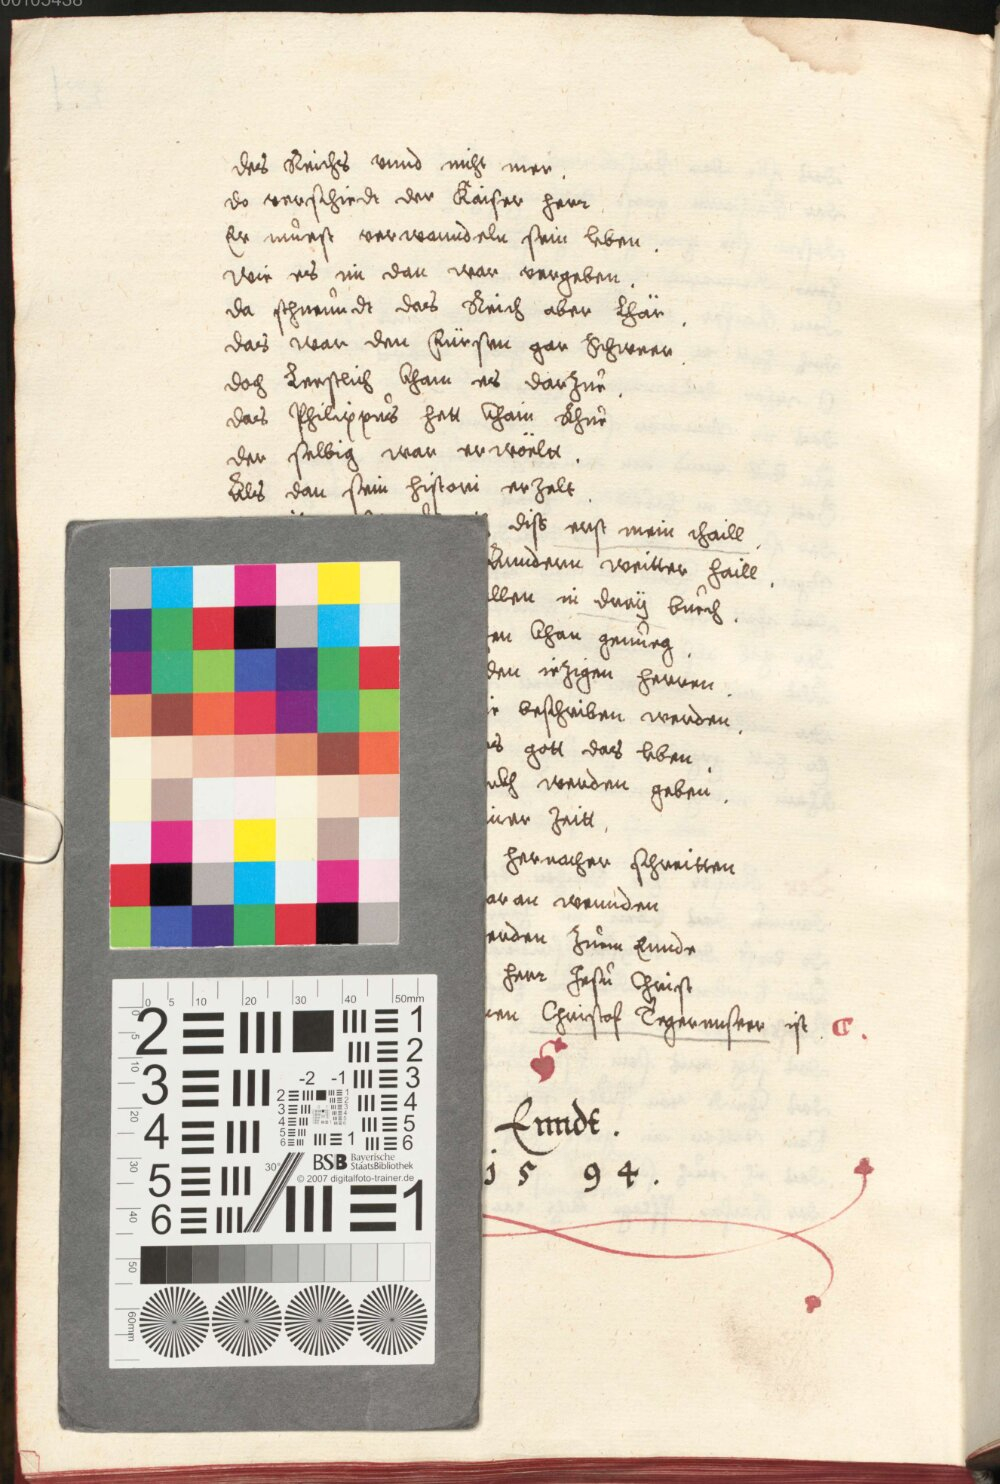 00105438
des Reichs vnnd nicht mer.
do verschiedt der Kaiser herr
Er müest verwanndeln sein leben.
wie es im dan war vergeben.
da schneündt das Reich aber Lhär.
das war den Fürsten gar Schweer.
doch Leestlich Cham es darzue.
das Philippus hett Cham Rhue
der selbig war erwöelt.
Als dan sein histori erzelt.
diss erst mein thaill.
Anndern weitter haill.
in dreÿ buech.
Chan genueg.
den ietzigen herren.
beschriben werden.
gott das leben.
werden geben.
Zeitt.
hernacher schreitten
wennden
Zum Ennde
herr Jesu Christ
Christof Tegernseer ist
Ennde.
15 94.
0 5 10 20 30 40 50mm
2 1
2
3 3
4 4
5 5
6 6
-2 -1
BSB Bayerische StaatsBibliothek
© 2007 digitalfoto-trainer.de
30°
1
60mm